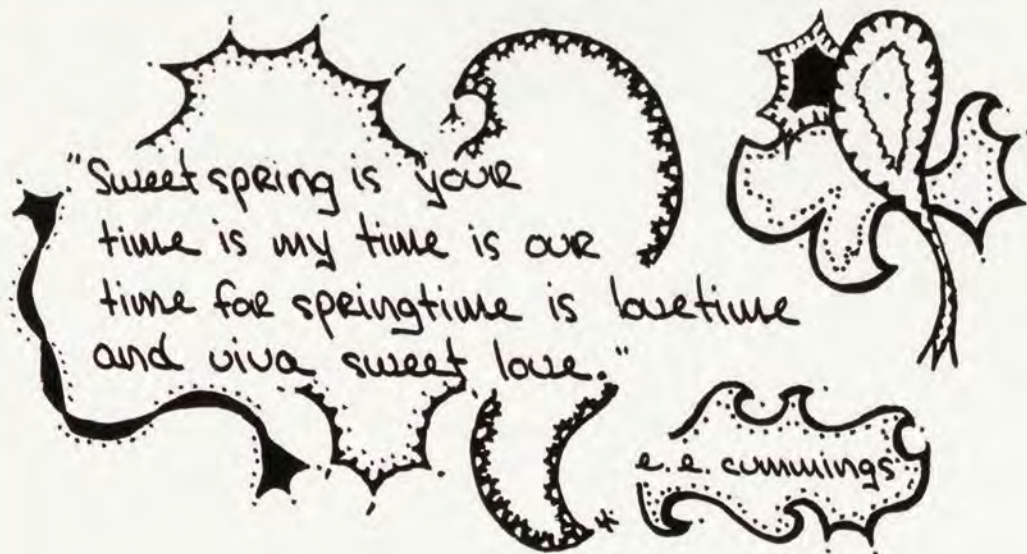 "Sweet spring is your
time is my time is our
time for springtime is lovetime
and viva sweet love."
e. e. cummings